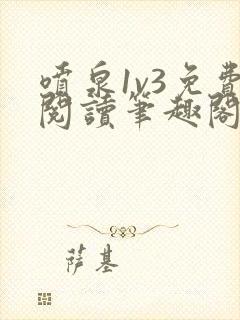 噴泉1v3免費
閱讀筆趣閣
萨基